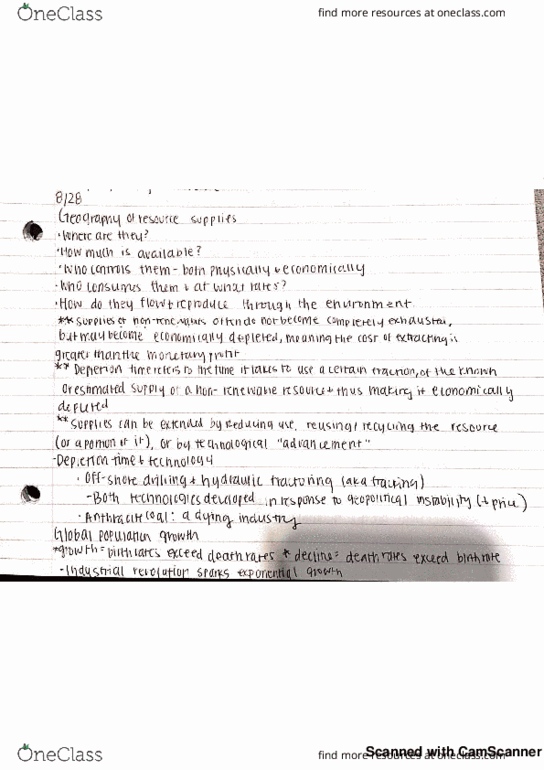 OneClass
find more resources at oneclass.com
8/28
Geography of resource supplies
·Where are they?
·How much is available?
·Who controls them - both physically + economically
·Who consumes them + at what rates?
·How do they flow + reproduce through the environment
** Supplies of non-renewables often do not become completely exhausted,
but may become economically depleted, meaning the cost of extracting is
greater than the monetary profit
** Depletion time refers to the time it takes to use a certain fraction, of the known
or estimated supply of a non-renewable resource + thus making it economically
depleted
** Supplies can be extended by reducing use, reusing/recycling the resource
(or a portion of it), or by technological "advancement"
-Depletion time + technology
· Off-shore drilling + hydraulic fracturing (aka fracking)
-Both technologies developed in response to geopolitical instability (+ price)
· Anthracite coal: a dying industry
Global population growth
*growth = birth rates exceed death rates * decline = death rates exceed birth rate
-Industrial revolution sparks exponential growth
OneClass
find more resources at oneclass.com
Scanned with CamScanner